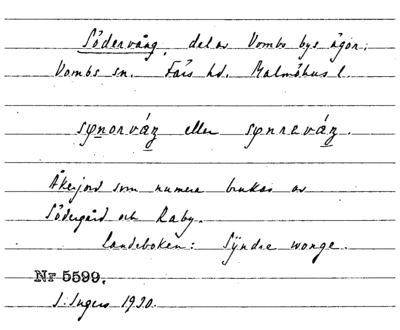 Södervång, del av Vombs bys ägor.
Vombs sn. Färs hd. Malmöhus l.
synorváŋ eller synreváŋ.
Åkerjord som numera brukas av
Södergård och Raby.
Landeboken: Syndre wonge.
Nr 5599.
I. Ingers 1930.